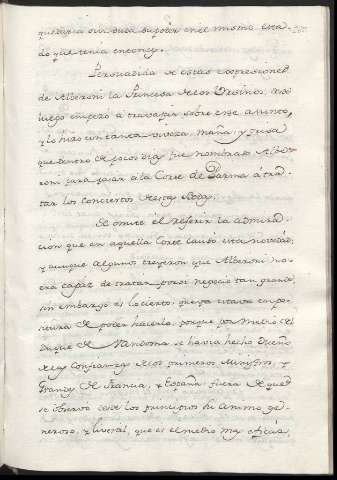 quedaria sin duda su poder en el mismo esta-
do que tenia entoncs.
Persuadida de estas expresiones
de Alberoni la Princesa de los Ursinos, des
luego empezò a travajar sobre este asunto,
y lo hizo con tanta viveza, maña, y prisa
que dentro de pocos dias fue nombrado Albe-
roni para pasar à la Corte de Parma à tra-
tar los conciertos de esta Boda.
Se omite el referir la admira-
cion que en aquella Corte causò esta novedad,
y aunque algunos creyeron que Alberoni no
era capàz de tratar por si negocio tan grande,
sin embargo es lo cierto, que ya estava en po-
situra de poder hacerlo, porque por medio del
Duque de Vandoma se havia hecho Dueño
de las Confianzas de los primeros Ministros, y
Grandes de Francia, y España fuera de que
se observò desde los principios su animo ge-
neroso, y liveral, que es el medio mas eficàz,